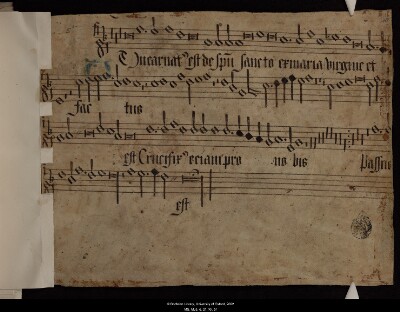 Et Incarnat9 est de spū sancto ex maria virgine et
fac tus
est Crucifix9 eciam pro no bis Passus
est
© Bodleian Library, University of Oxford